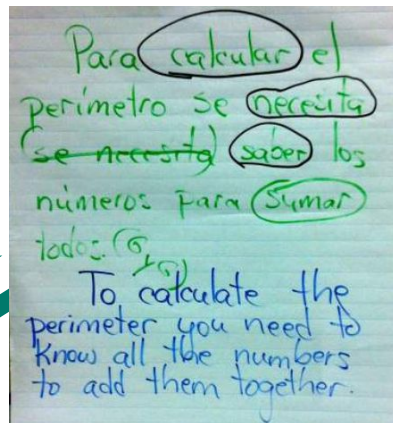 Para calcular el
perímetro se necesita
(se necesita) saber los
números para sumar
todos.
To calculate the
perimeter you need to
know all the numbers
to add them together.